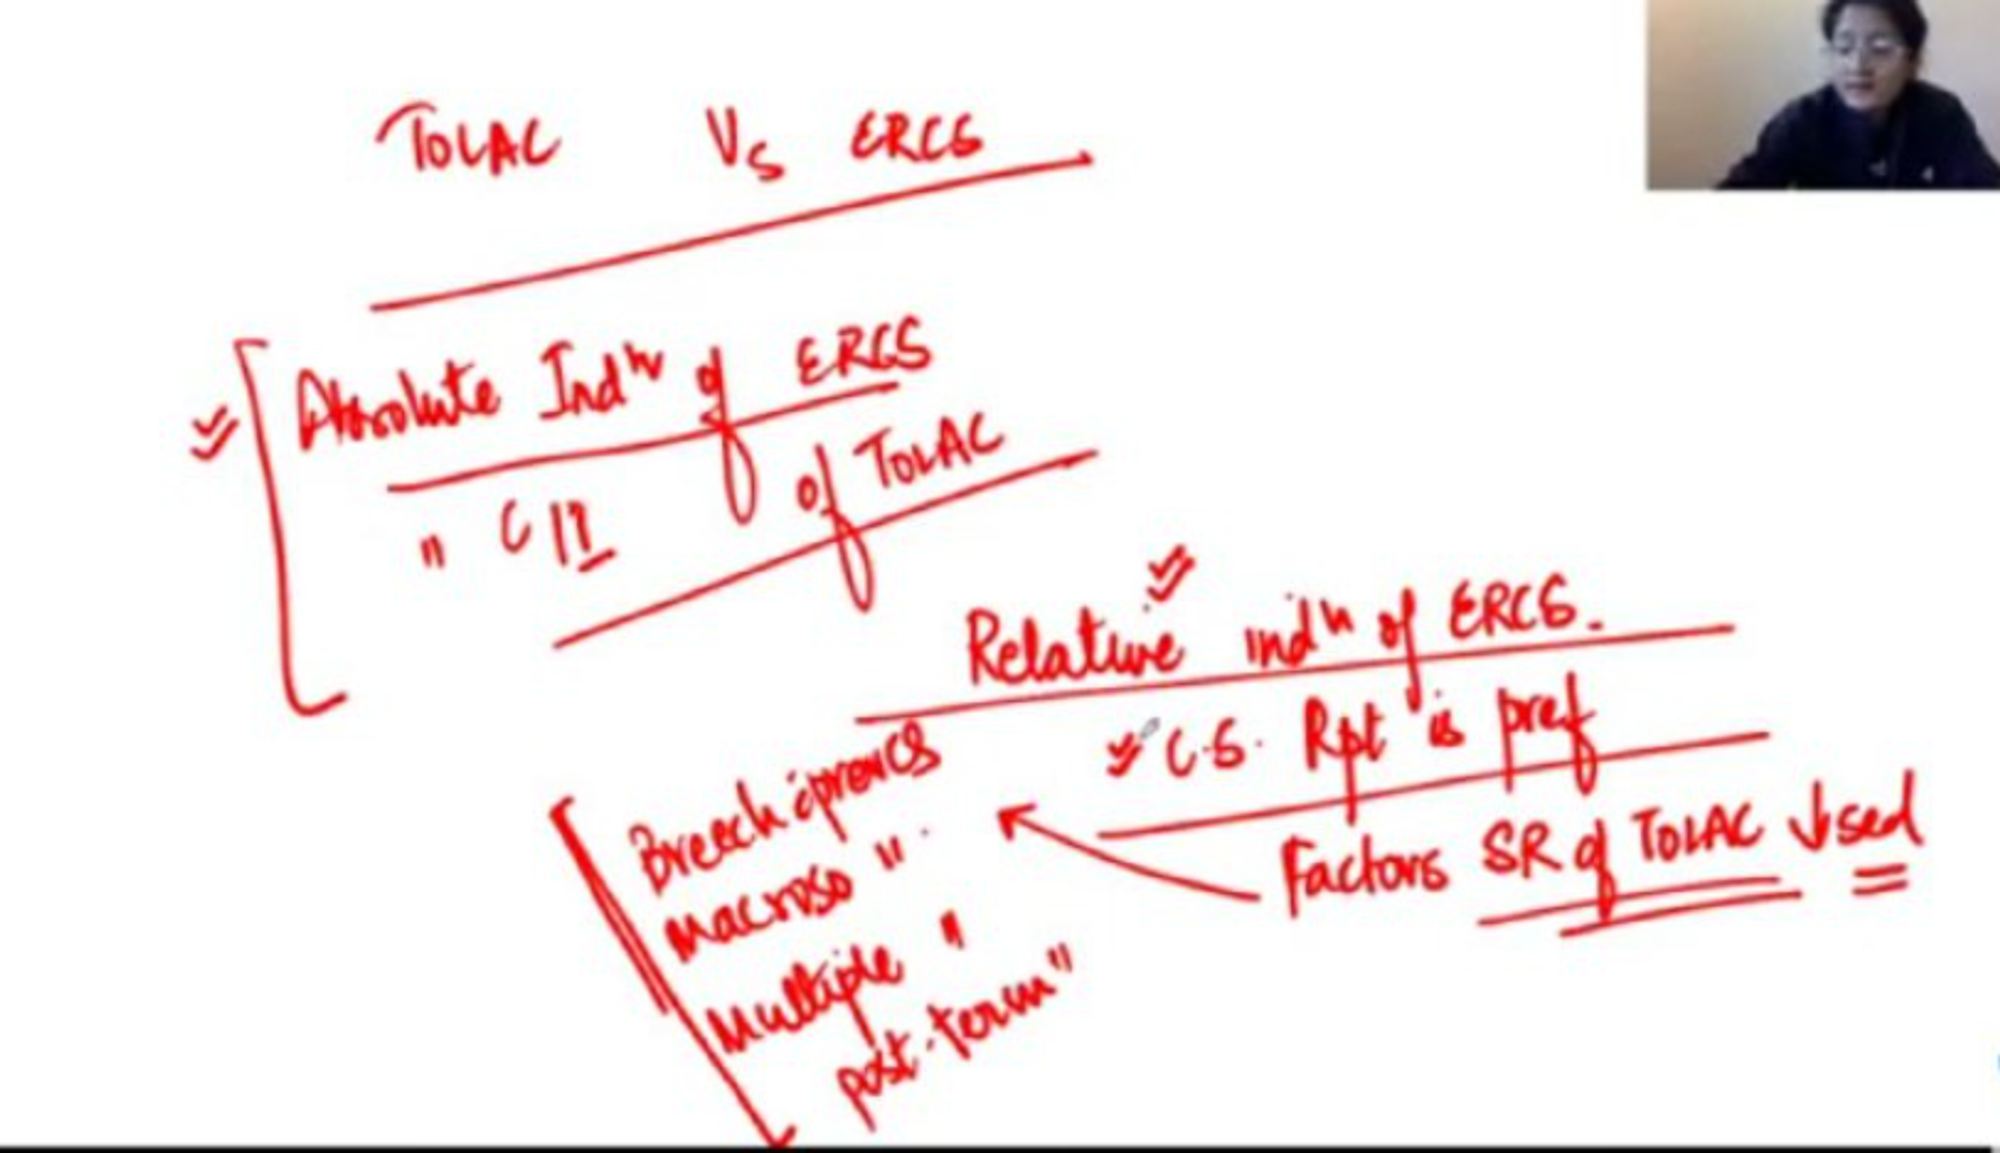 TOLAC Vs ERCS
Absolute Indn of ERCS
" C/I of TOLAC
Relative indn of ERCS.
C.S. Rpt is pref
Factors SR of TOLAC ↓sed
Breech
Macroso " .
Multiple "
post-term "